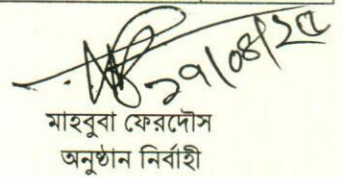 ২৭/০৪/২৫
মাহবুবা ফেরদৌস
অনুষ্ঠান নির্বাহী